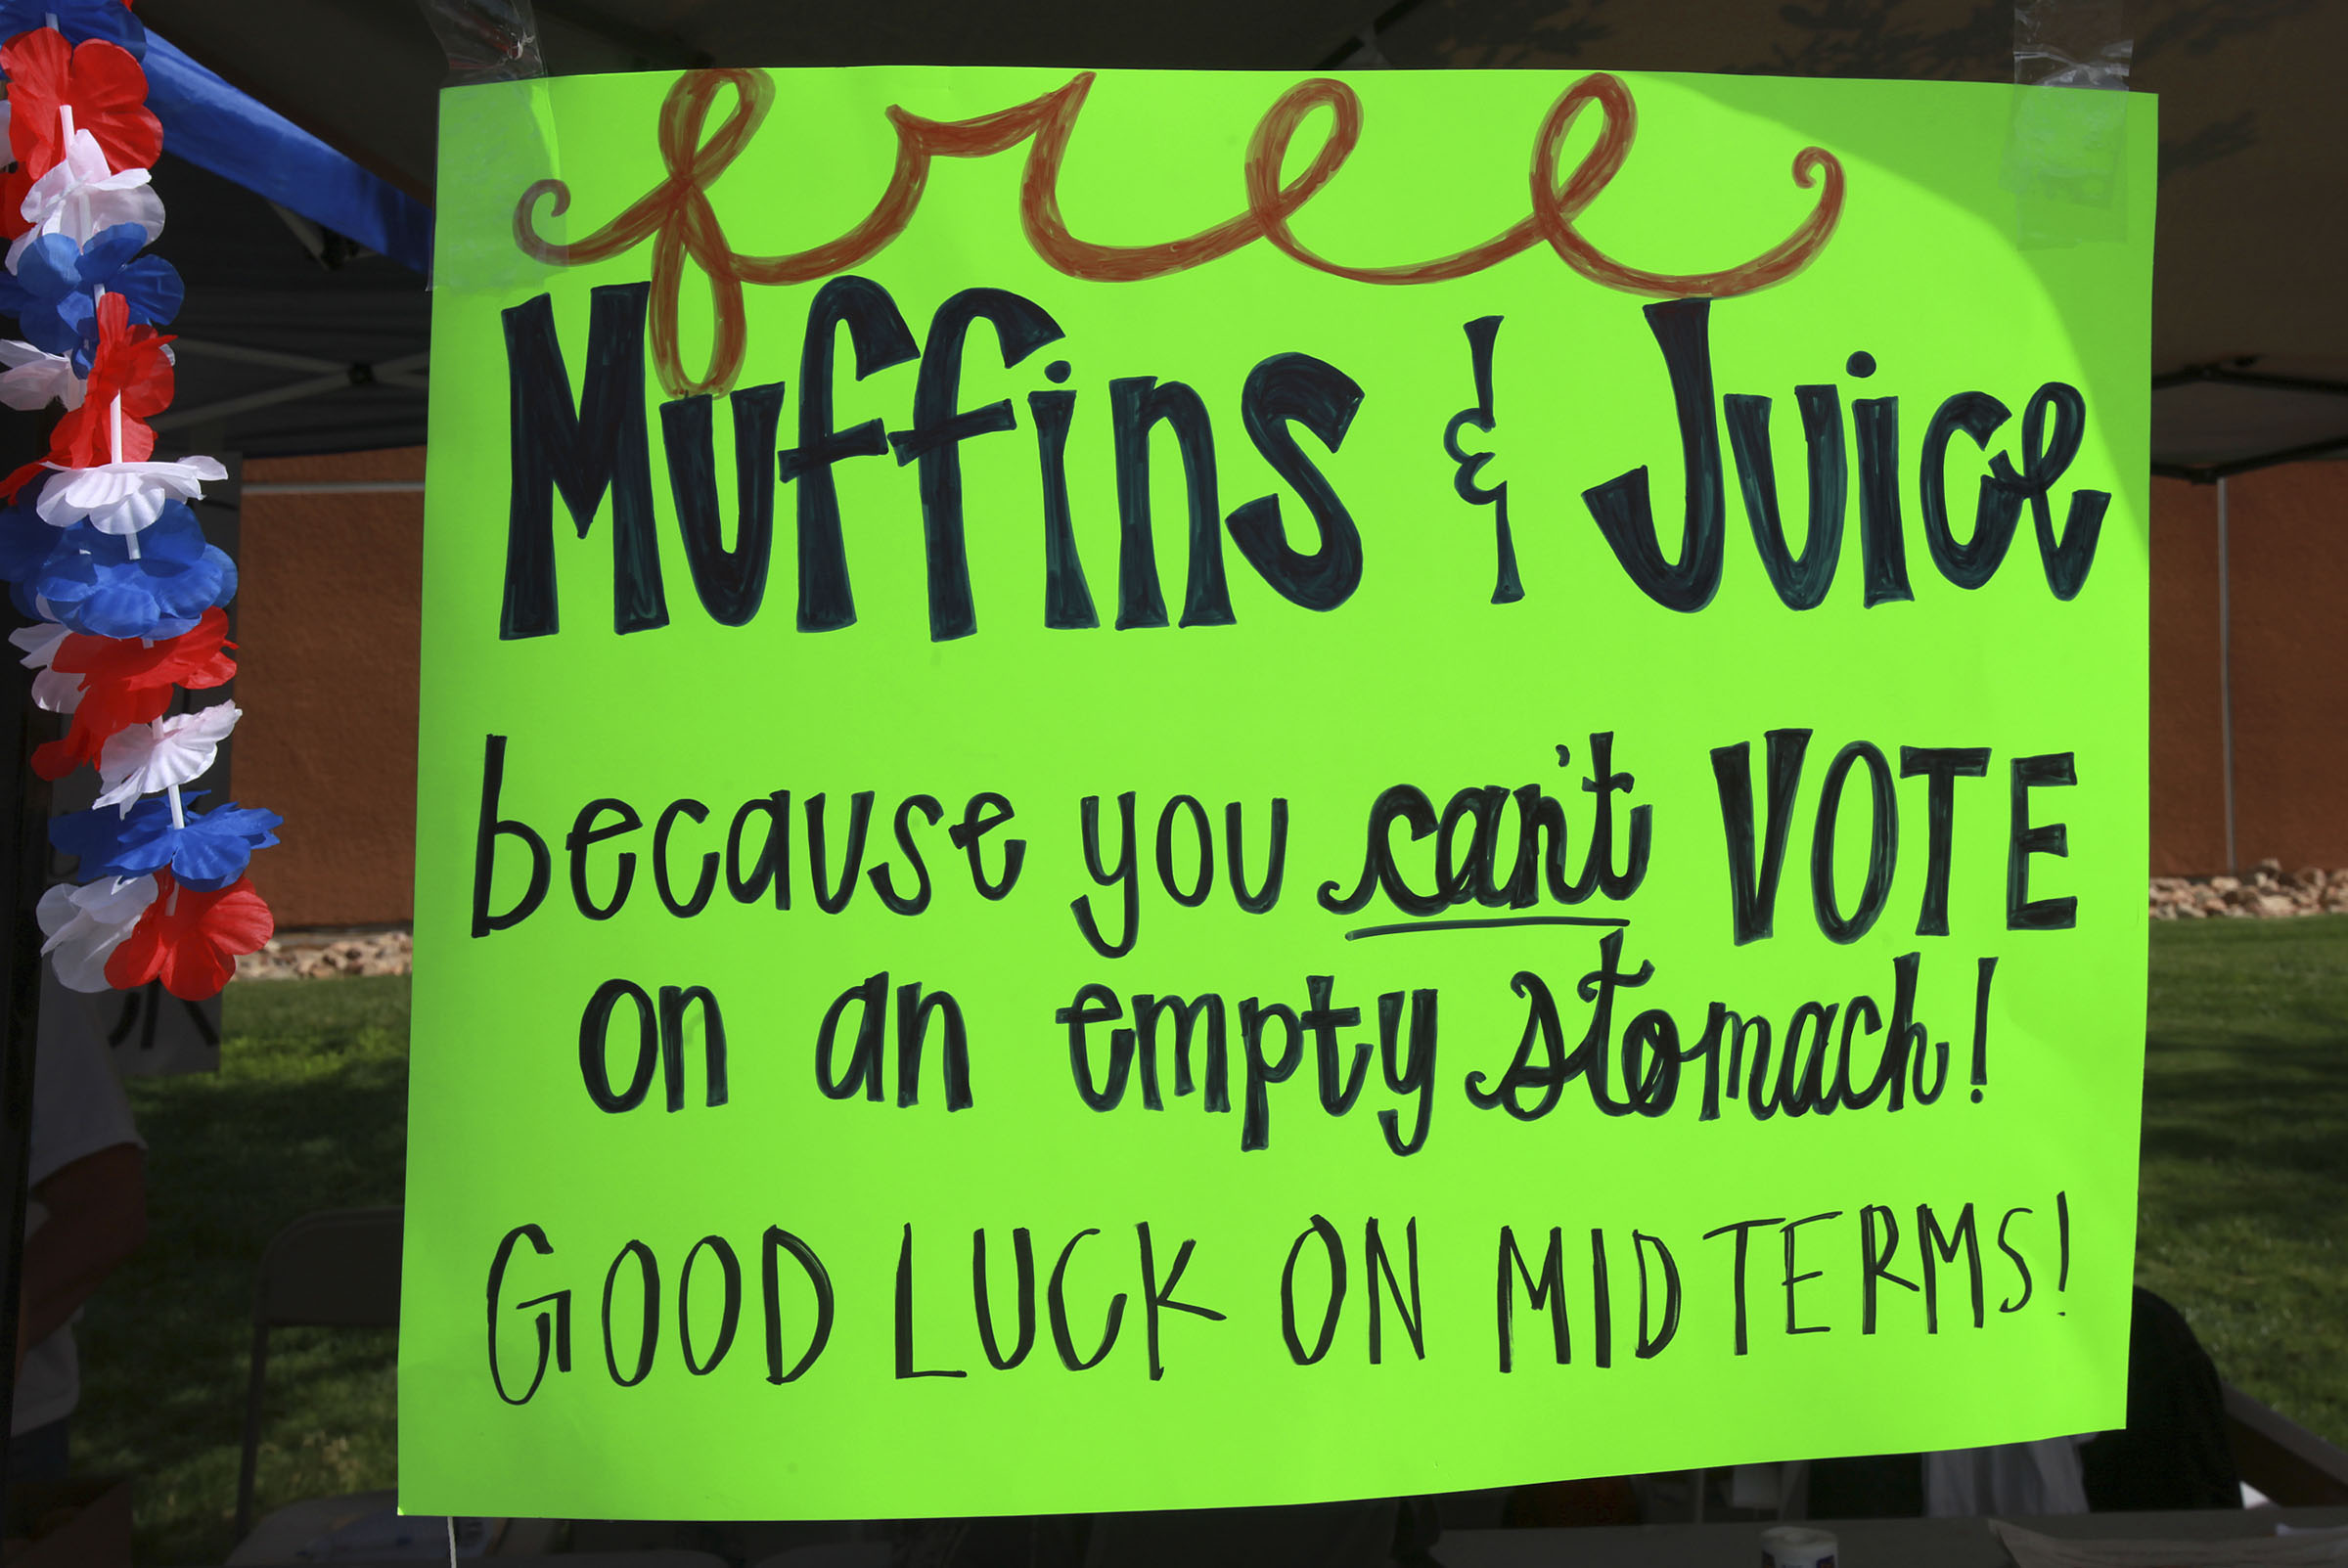 free
Muffins & Juice
because you can't VOTE
on an empty stomach!
GOOD LUCK ON MIDTERMS!